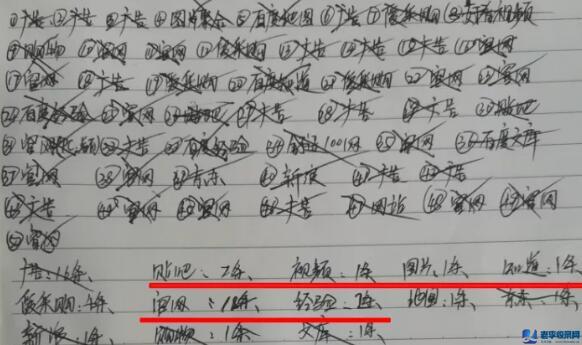 ①广告 ②广告 ③广告 ④图片聚合 ⑤百度地图 ⑥广告 ⑦爱采购 ⑧好看视频
⑨购物 ⑩官网 官网 ⑫爱采购 ⑬广告 ⑭广告 ⑮广告 ⑯官网
⑰官网 ⑱广告 ⑲爱采购 ⑳百度知道 ㉑爱采购 ㉒官网 ㉓官网
㉔百度经验 ㉕官网 ㉖贴吧 ㉗广告 ㉘广告 ㉙广告 ㉚贴吧
㉛官网 ㉜广告 ㉝百度经验 ㉞ 1001网 ㉟官网 ㊱百度文库
㊲官网 ㊳官网 ㊴京东 ㊵新浪 ㊶广告 ㊷广告
㊸广告 ㊹官网 ㊺官网 ㊻广告 ㊼网站 ㊽官网 ㊾官网
㊿官网
广告:16条、 贴吧:2条、 视频:1条 图片:1条、 知道:1条、
爱采购:4条、 官网: 条、 经验:2条、 地图:1条、 京东:1条、
新浪:1条、 购物:1条 文库:1条、
老李收录网